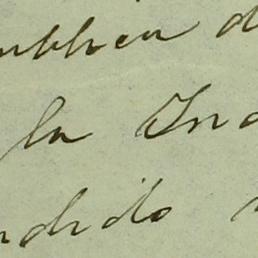 ublica d
la Ind
ndido